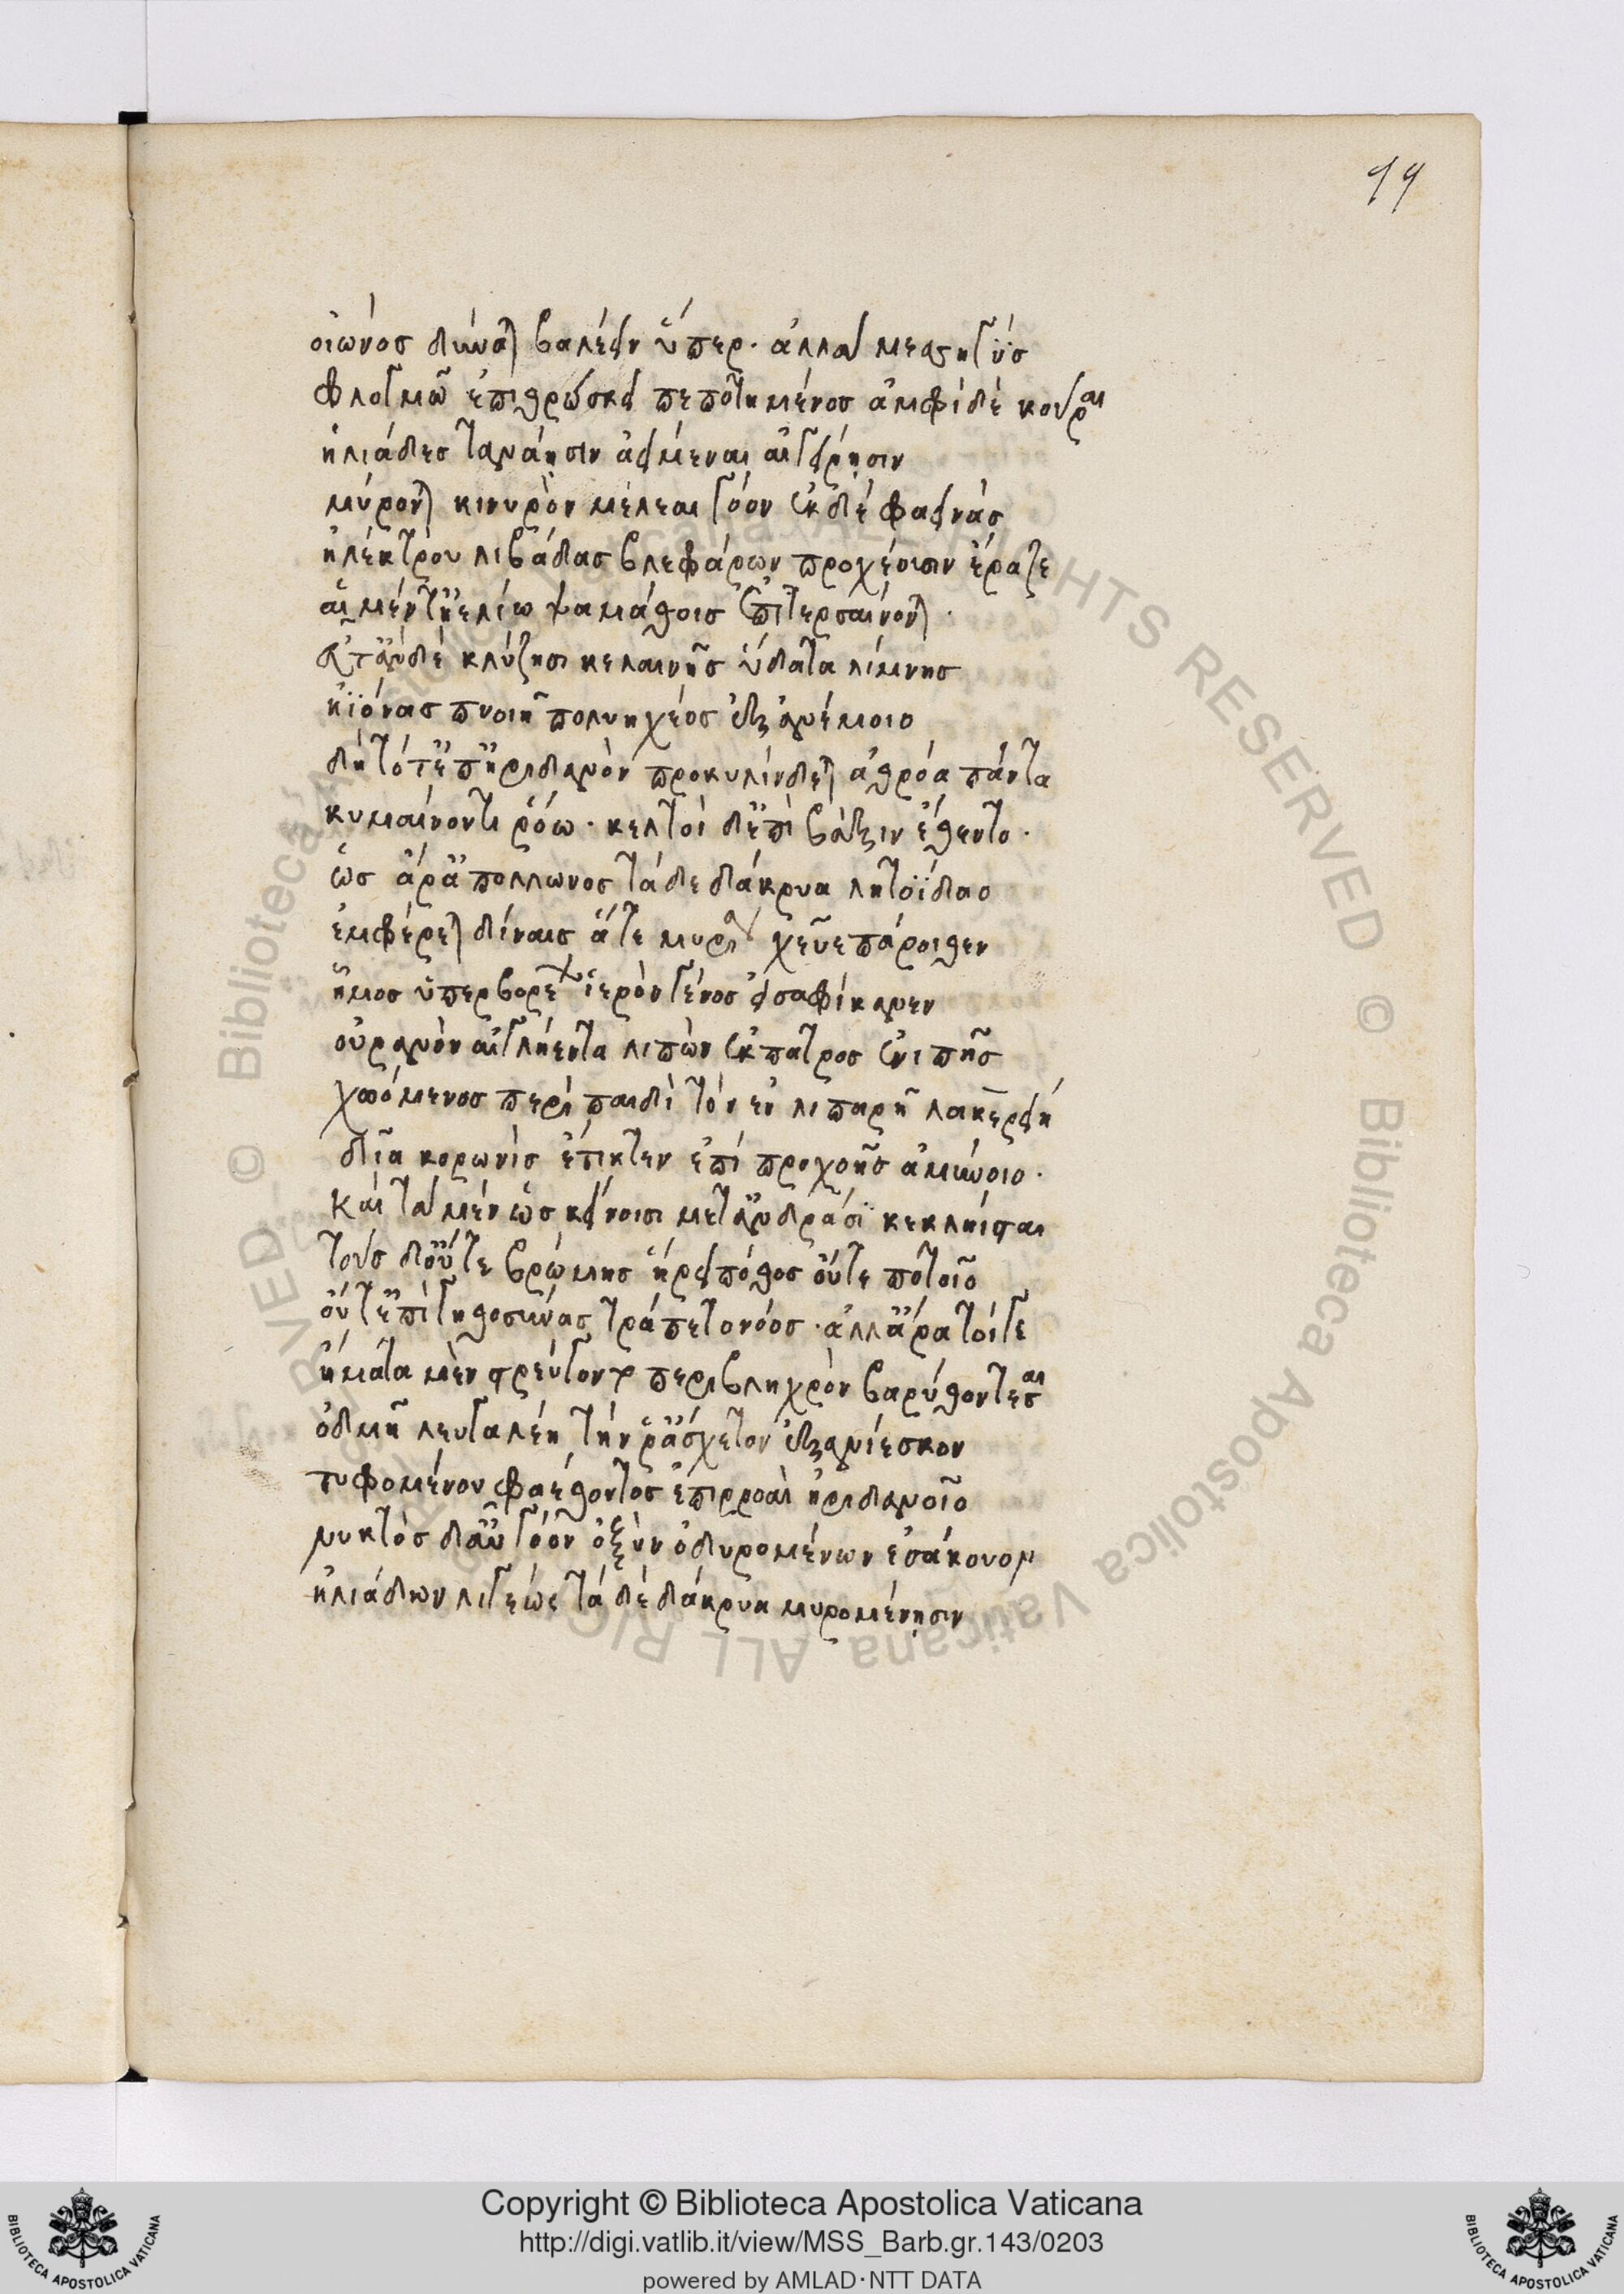 99
οἰωνὸσ δύναται βαλέειν ὕπερ· ἀλλὰ μεσηγὺσ
φλογμῶ ἐπιθρώσκει πεποτημένοσ ἀμφὶ δὲ κοῦραι
ἡλιάδεσ ταναῆσιν ἀείμεναι αἰγείρησιν
μύρονται κινυρὸν μέλεαι γόον ἐκ δὲ φαεινὰσ
ἠλέκτρου λιβάδασ βλεφάρων προχέουσιν ἔραζε
αἱ μέν τ' ἠελίω ψαμάθοισ ἐπιτερσαίνονται.
εὖτ' ἂν δὲ κλύζησι κελαινῆσ ὕδατα λίμνησ
ἠϊόνασ πνοιῆ πολυηχέοσ ἐξ ἀνέμοιο
δὴ τότ' ἐπ' ἠριδανὸν προκυλίνδεται ἀθρόα πάντα
κυμαίνοντι ῥόω· κελτοὶ δ' ἐπὶ βάξιν ἔθεντο.
ὡσ ἄρ' ἀπόλλωνοσ τάδε δάκρυα λητοΐδαο
ἐμφέρεται δίναισ ἅτε μυρία χεῦε πάροιθεν
ἦμοσ ὑπερβορέων ἱερὸν γένοσ εἰσαφίκανεν
οὐρανὸν αἰγλήεντα λιπὼν ἐκ πατρὸσ ἐνιπῆσ
χωόμενοσ περὶ παιδὶ τὸν ἐν λιπαρῆ λακερείη
δῖα κορωνὶσ ἔτικτεν ἐπὶ προχοῆσ ἀμύροιο.
καὶ τὰ μὲν ὣσ κείνοισι μετ' ἀνδράσϊ κεκλήισται
τοὺσ δ' οὔτε βρώμησ ἥρει πόθοσ οὔτε ποτοῖο
οὔτ' ἐπὶ γηθοσύνασ τράπετο νόοσ· ἀλλ' ἄρα τοίγε
ἤματα μὲν στρεύγοντο περιβληχρὸν βαρύθοντεσ
ὀδμῆ λευγαλέη τήν ῥ' ἄσχετον ἐξανίεσκον
τυφομένου φαέθοντοσ ἐπιρροαὶ ἠριδανοῖο
νυκτὸσ δ' αὖ γόον ὀξὺν ὀδυρομένων ἐσάκουον
ἡλιάδων λιγέωσ τὰ δὲ δάκρυα μυρομένησιν
Copyright © Biblioteca Apostolica Vaticana
http://digi.vatlib.it/view/MSS_Barb.gr.143/0203
powered by AMLAD·NTT DATA